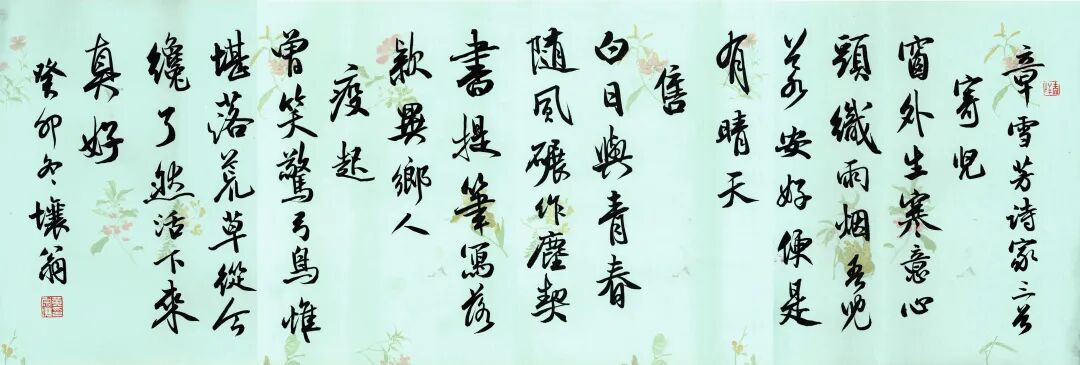 章雪芳诗家三首
寄兒
窗外生寒意心
頭織雨烟吾兒
若安好便是
有晴天
售
白日與青春
随風碾作塵契
書提筆寫落
款異鄉人
疫起
曾笑驚弓鳥惟
堪落荒草從今
纔了然活下來
真好
癸卯冬壤翁